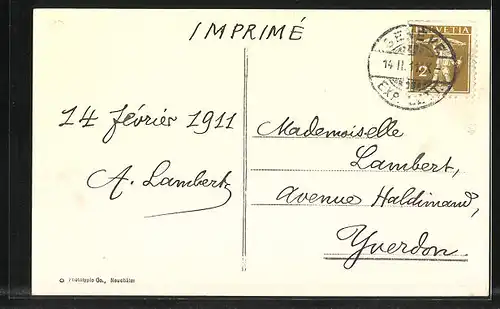 IMPRIMÉ
GENÈVE
14 II.
EXP. LETT.
HELVETIA
2
14 février 1911
A. Lambert
Mademoiselle
Lambert,
Avenue Haldimand,
Yverdon.
Phototypie Co., Neuchâtel